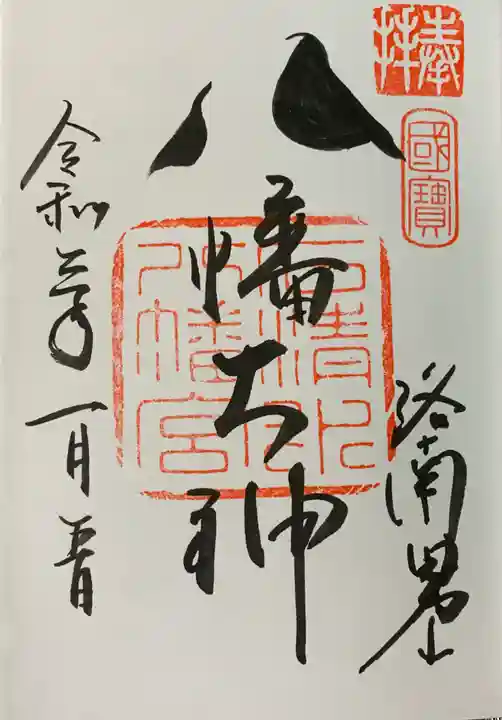 奉拝
國寶
洛南男山
八幡大神
石清水八幡宮
令和年一月日